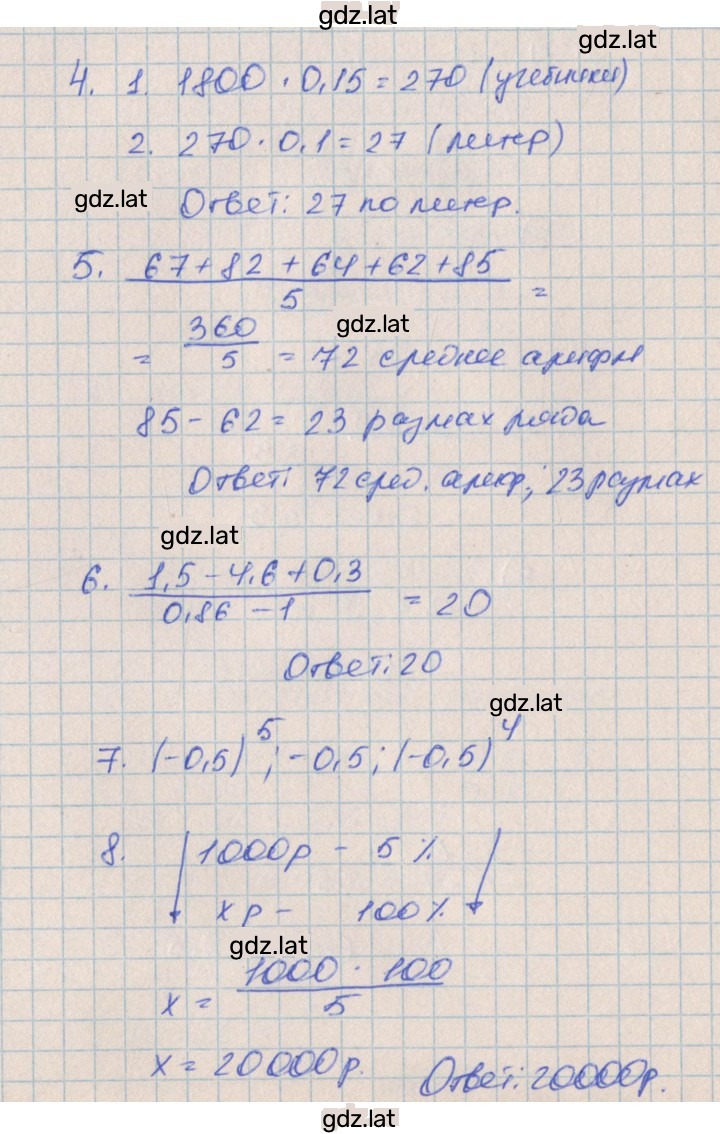 gdz.lat
gdz.lat
4. 1. 1800 · 0,15 = 270 (учебники)
2. 270 · 0,1 = 27 (литер)
gdz.lat
Ответ: 27 по литер.
5. 67 + 82 + 64 + 62 + 85 / 5 =
gdz.lat
= 360 / 5 = 72 среднее арифм
85 - 62 = 23 размах ряда
Ответ: 72 сред. ариф; 23 размах
gdz.lat
6. 1,5 - 4,6 + 0,3 / 0,86 - 1 = 20
Ответ: 20
gdz.lat
7. (-0,5)⁵; -0,5; (-0,5)⁴
8. 1000р - 5 %
х р - 100%
gdz.lat
х = 1000 · 100 / 5
х = 20000р. Ответ: 20000р.
gdz.lat